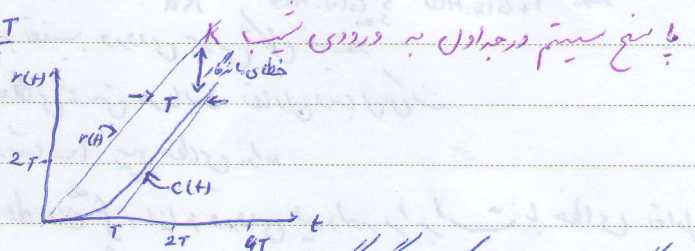 پاسخ سیستم درجه اول به ورودی شیب K
T
r(t)
خطای ماندگار
T
r(t)
2T
c(t)
t
T
2T
4T